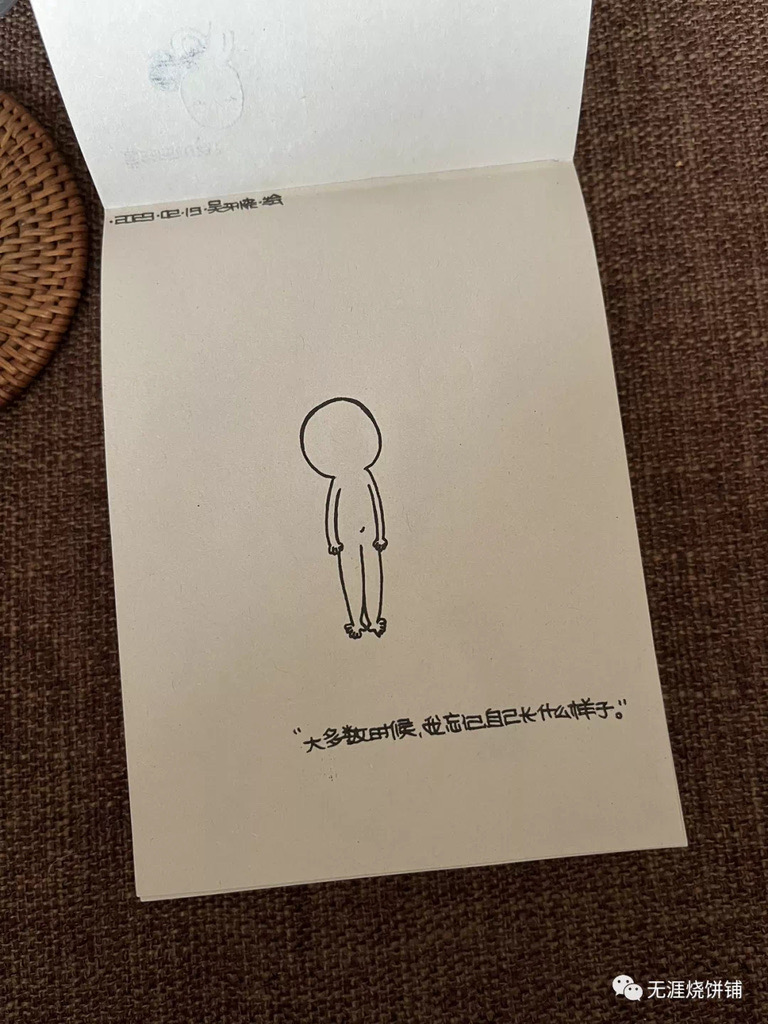 2023·02
“大多数时候,我忘记自己长什么样子。”
无涯烧饼铺